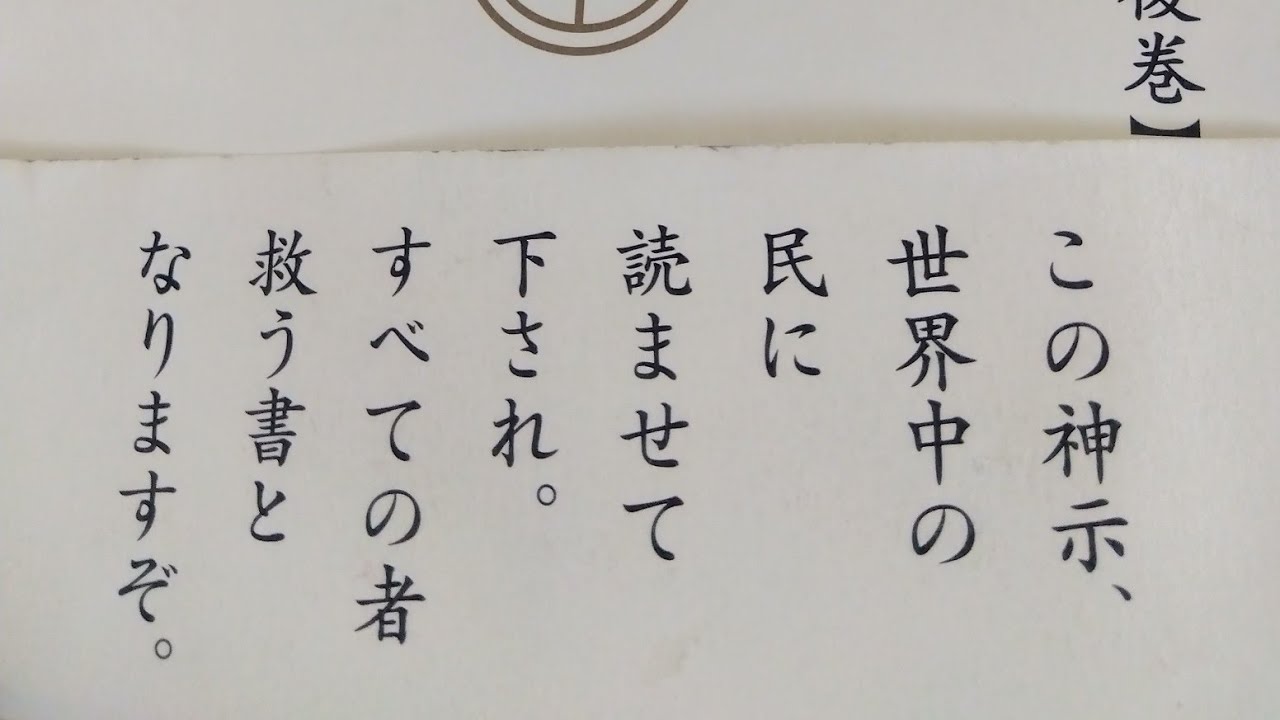 後巻】
この神示、
世界中の
民に
読ませて
下され。
すべての者
救う書と
なりますぞ。